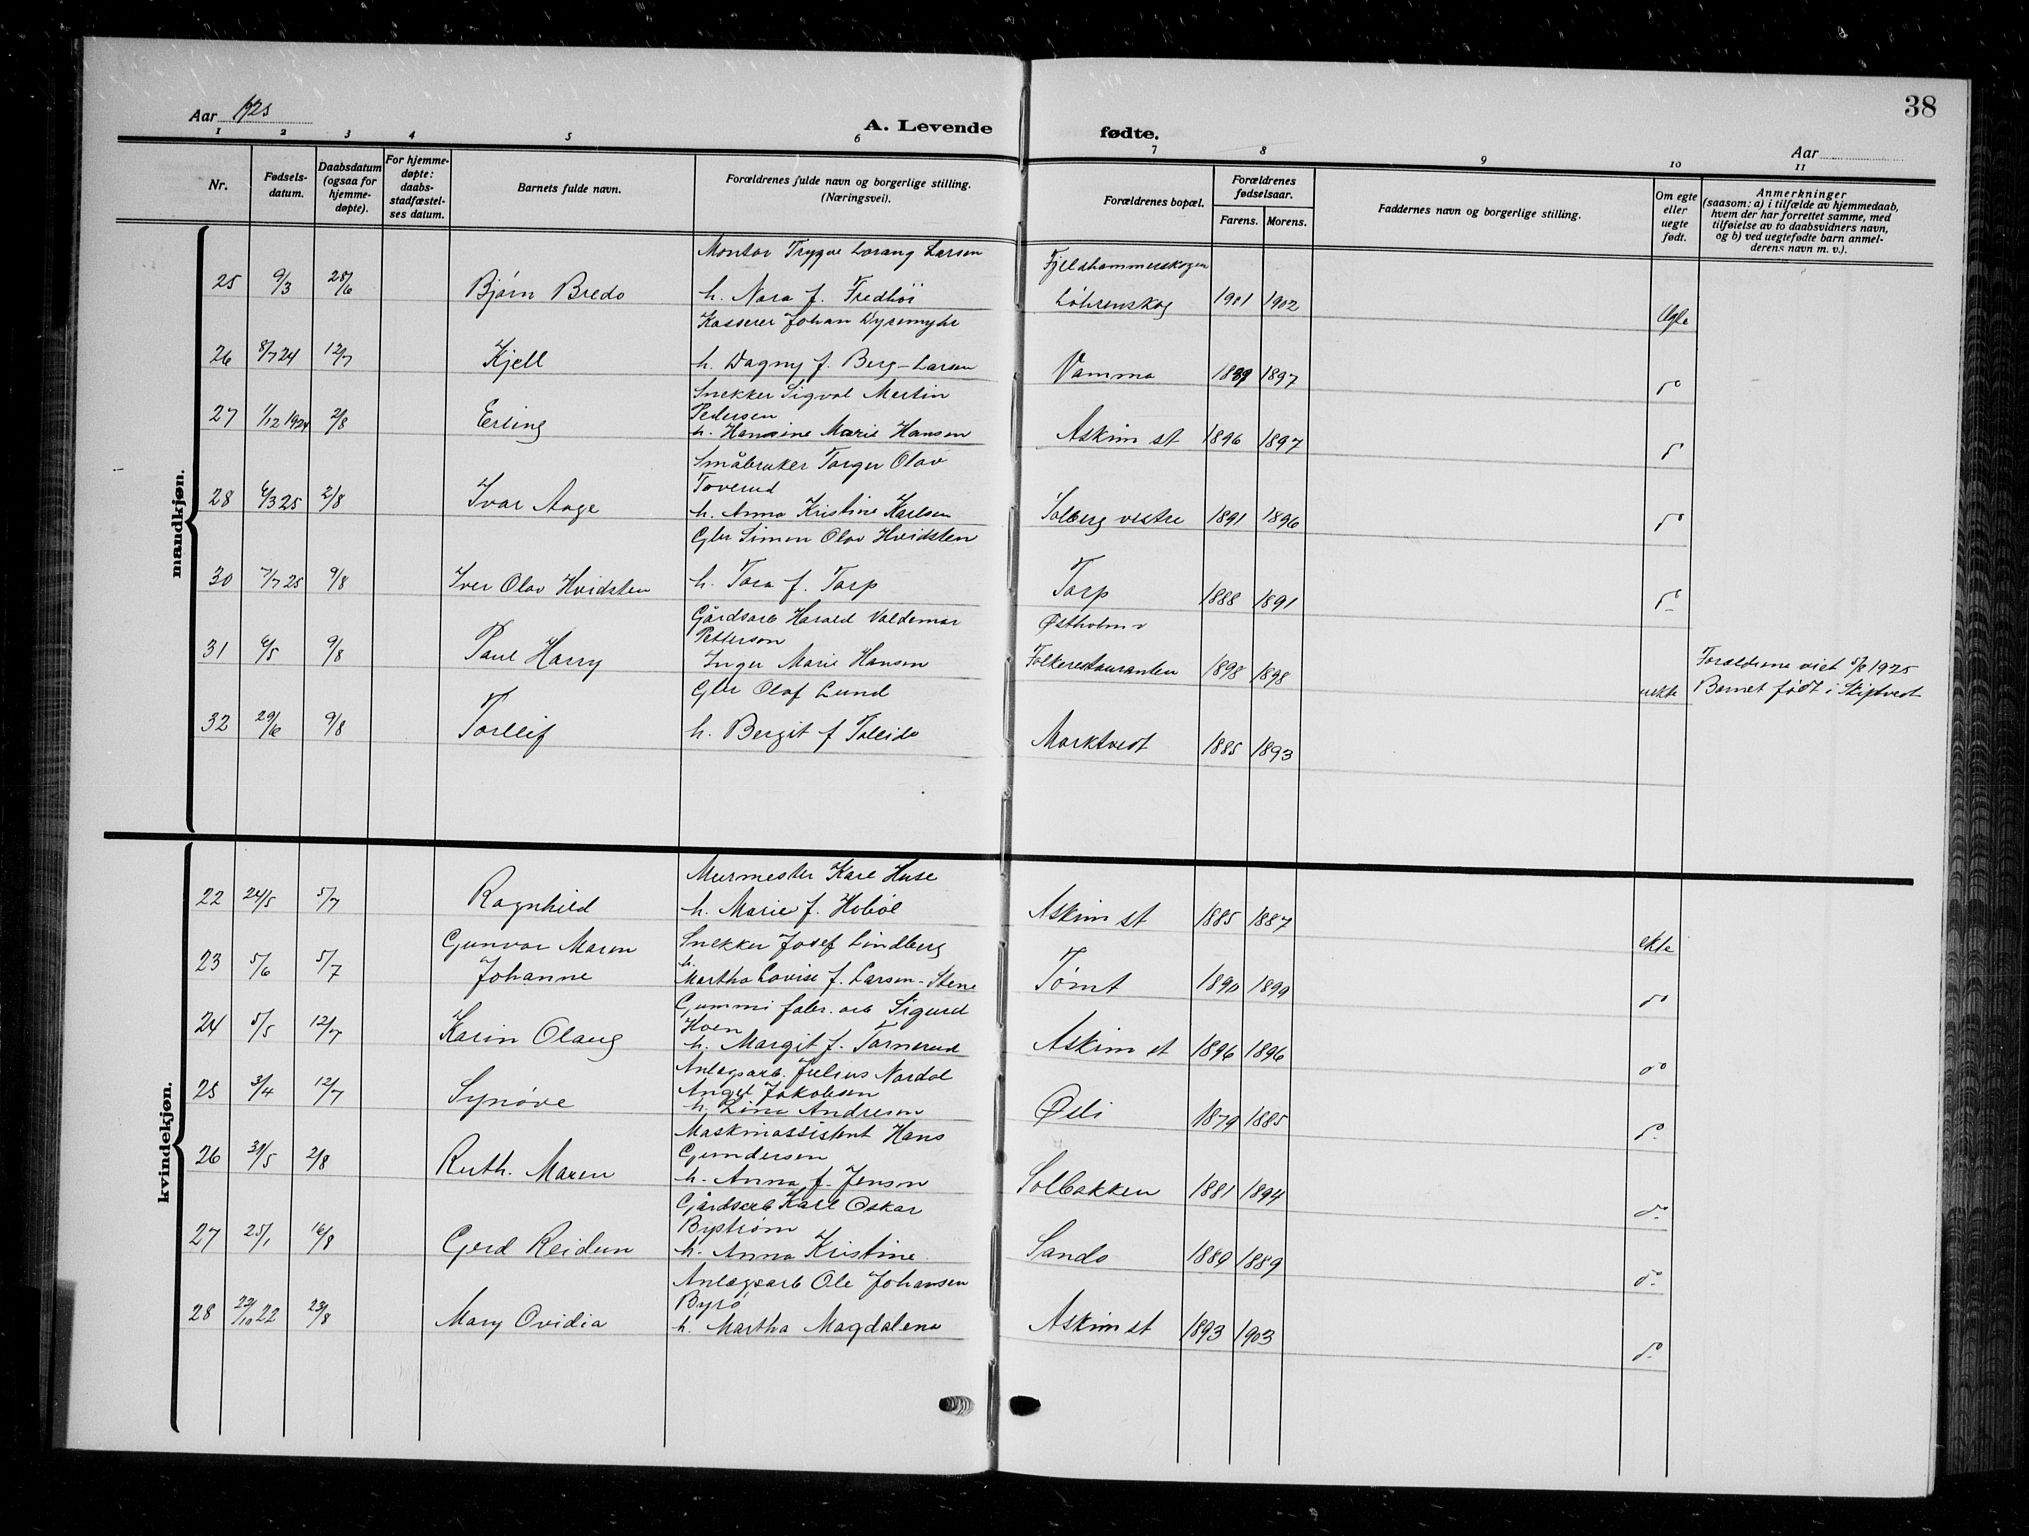 38
Aar 1925
A. Levende fødte.
Aar
1 2 3 4 5 6 7 8 9 10 11
Nr.
Fødsels-
datum.
Daabsdatum
(ogsaa for
hjemme-
døpte).
For hjemme-
døpte:
daabs-
stadfæstel-
ses datum.
Barnets fulde navn.
Forældrenes fulde navn og borgerlige stilling.
(Næringsvei).
Forældrenes bopæl.
Forældrenes
fødselsaar.
Farens. Morens.
Faddernes navn og borgerlige stilling.
Om egte
eller
uegte
født.
Anmerkninger
(saasom: a) i tilfælde av hjemmedaab,
hvem der har forrettet samme, med
tilføielse av to daabsvidners navn,
og b) ved uegtefødte barn anmel-
derens navn m. v.).
mandkjøn.
Montør Trygve Lorang Larsen Fjeldhammerskogen
25 9/3 28/6 Bjørn Bredo h. Nora f. Fredhøi Løhrenskog 1901 1902 Egte
Kasserer Johan Dyremyhr
26 8/7 24 12/7 Kjell h. Dagny f. Berg-Larsen Vamma 1889 1897 do
Snekker Sigval Martin
Pedersen
27 1/12 1924 2/8 Erling h. Hansine Marie Hansen Askim st 1896 1897 do
Småbruker Torger Olav
Toverud
28 6/3 25 2/8 Ivar Aage h. Anna Kristine Karlsen Solberg vestre 1891 1896 do
Gbr Simen Olav Hvidsten
30 7/7 25 9/8 Iver Olav Hvidsten h. Tora f. Torp Torp 1888 1891 do
Gårdsarb Harald Valdemar Østholm v
Petterson
31 6/5 9/8 Paul Harry Inger Marie Hansen Folkerestauranten 1898 1898 uekte Forældrene viet 5/8 1925
Barnet født i Skiptvedt
Gbr Olaf Lund
32 29/6 9/8 Torleif h. Bergit f Tolleids Morktvedt 1885 1893
kvindekjøn.
Murmester Karl Huse
22 24/5 5/7 Ragnhild h. Marie f. Hobøl Askim st 1885 1887 ekte
Gunvor Maren Snekker Josef Lindberg
h.
23 5/6 5/7 Johanne Martha Lovise f. Larsen-Stene Tømt 1890 1899 do
Gummi fabr. arb Sigurd
Hoen
24 5/5 12/7 Karin Olaug h. Margit f. Tornerud Askim st 1896 1896 do
Anlegsarb. Julius Nordal
Angel Jakobsen
25 3/4 12/7 Synøve h. Lina Andresen Østi 1879 1885 do
Maskinassistent Hans
Gundersen
26 31/5 2/8 Ruth. Maren h. Anna f. Jenson Solbakken 1881 1894 do
Gårdsarb Karl Oskar
Bystrøm
27 25/1 16/8 Gerd Reidun h. Anna Kristine Sando 1889 1889 do
Anlegsarb Ole Johansen
Byrø
28 22/10 22 23/8 Mary Ovidia h. Martha Magdalena Askim st 1893 1903 do